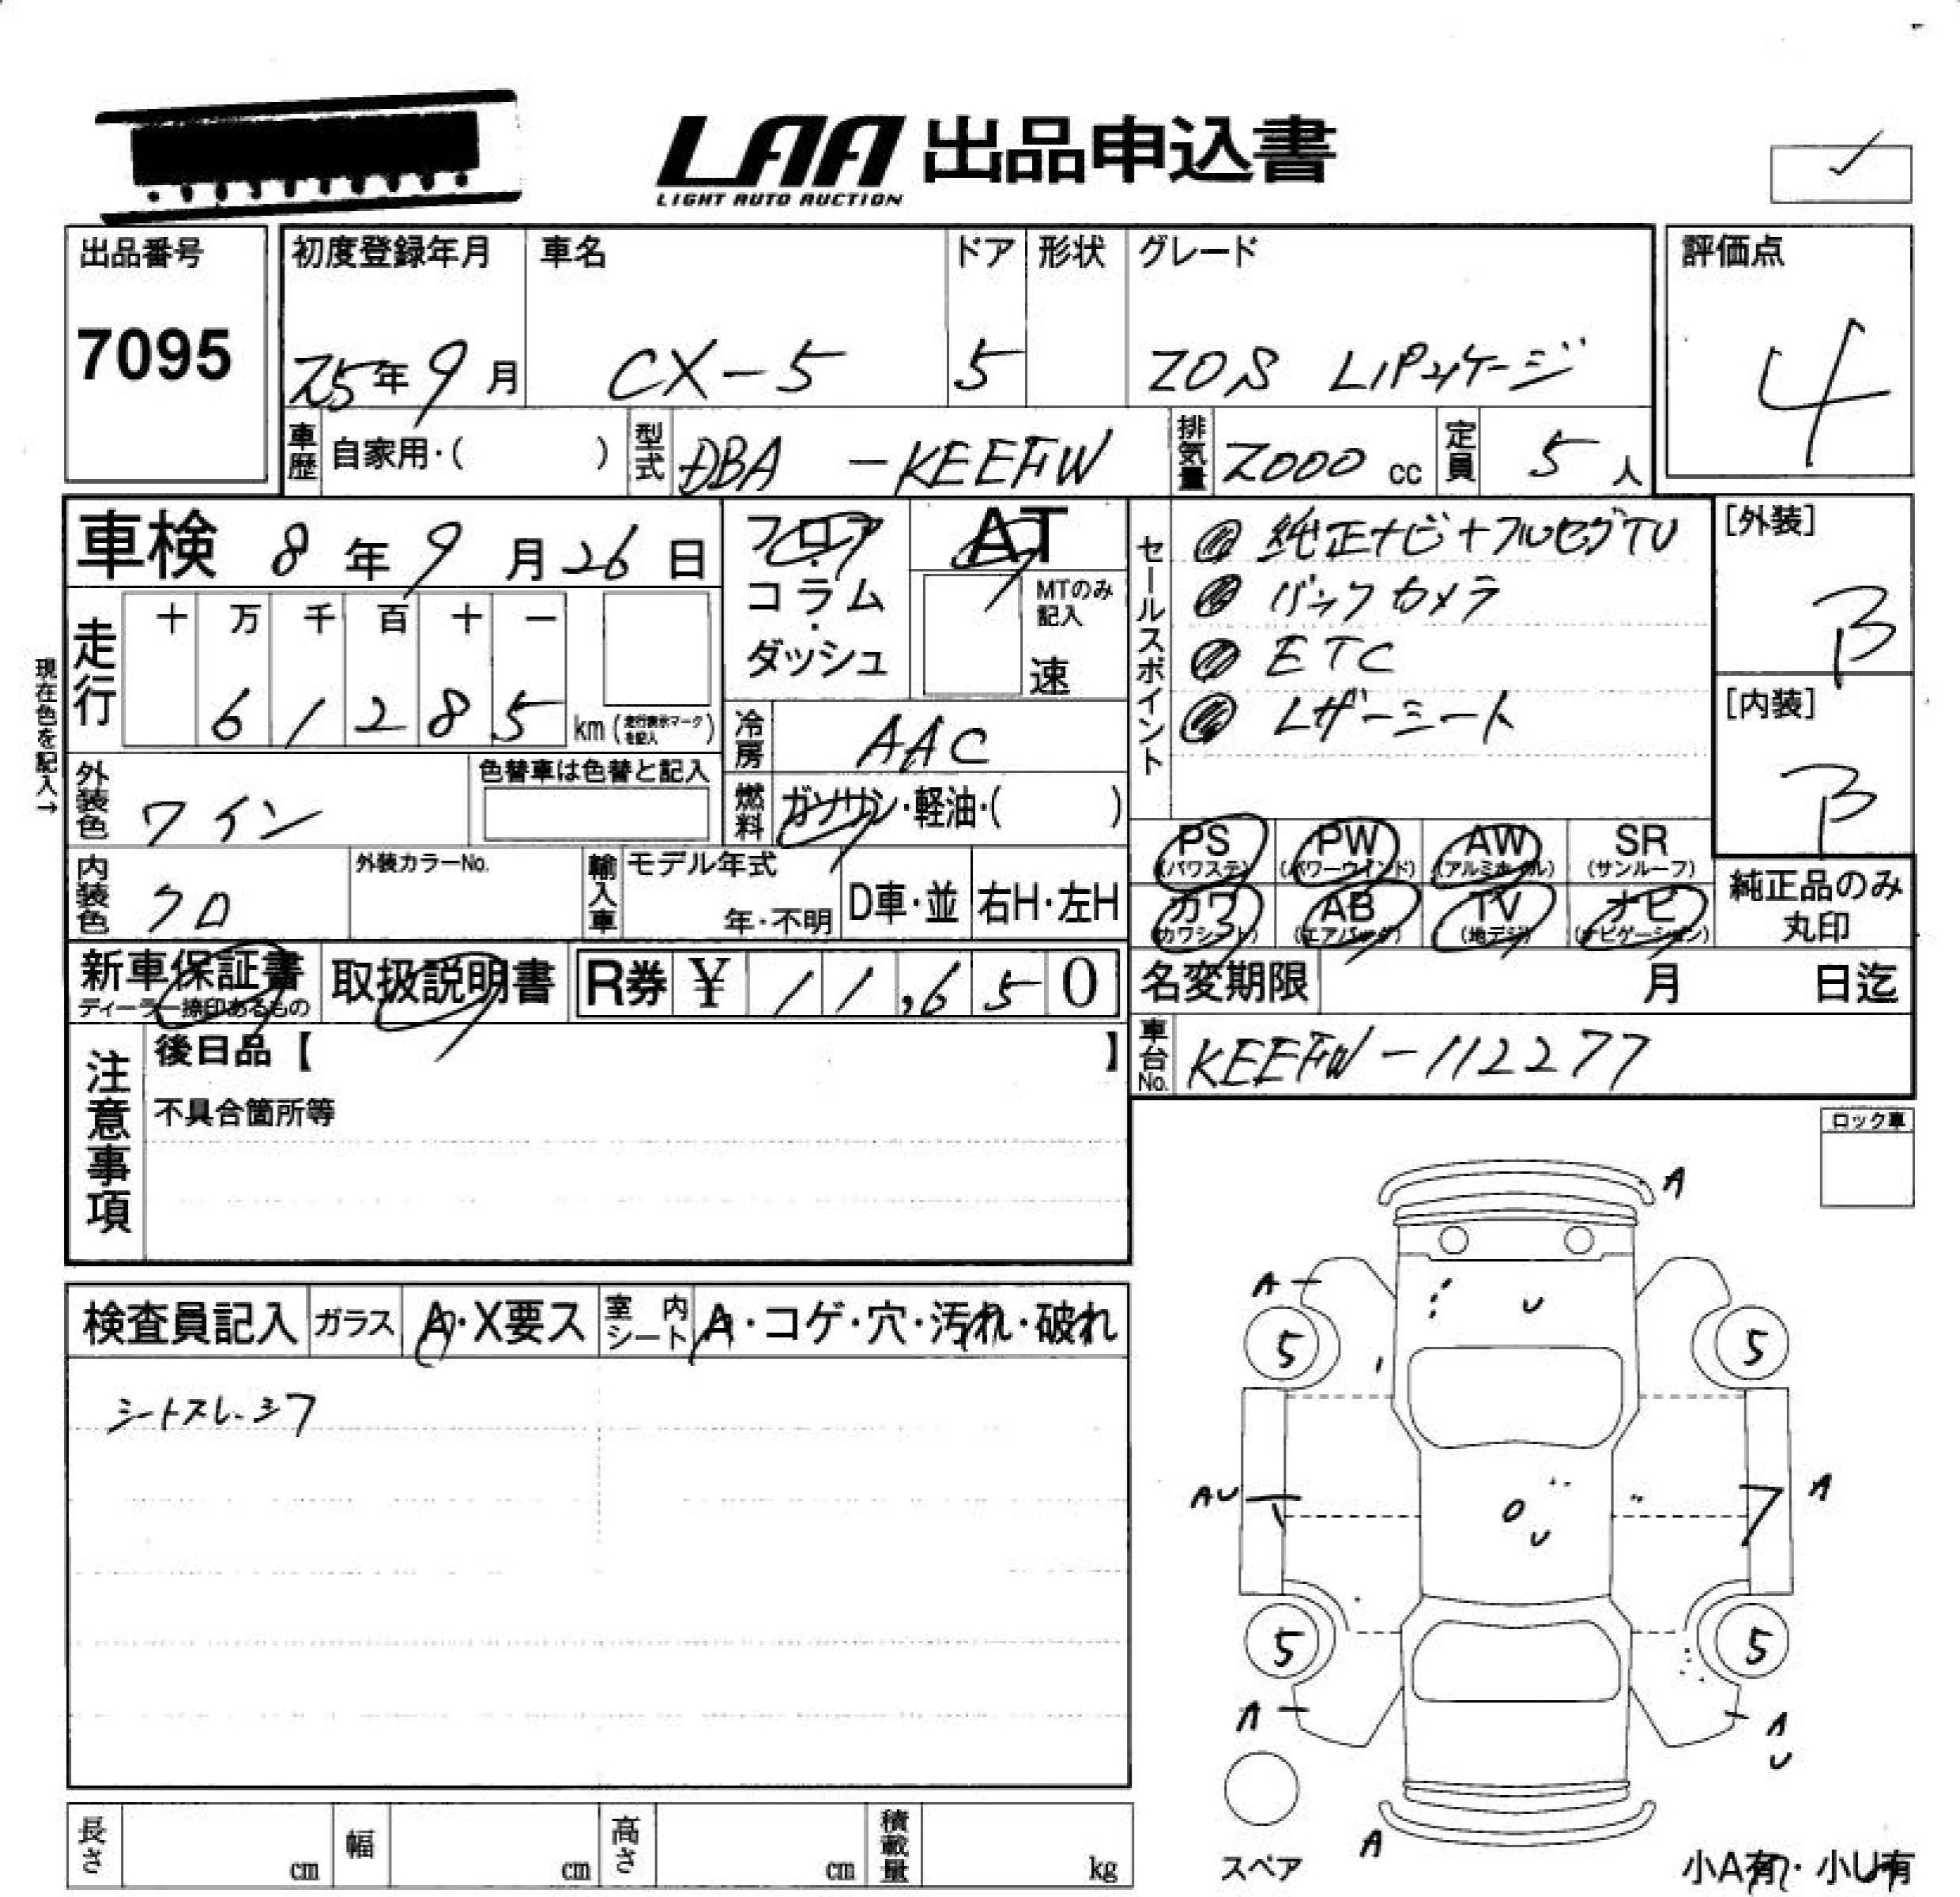 LAA 出品申込書
LIGHT AUTO AUCTION
出品番号
7095
初度登録年月
25年9月
車名
CX-5
ドア
5
形状
グレード
20S Lパッケージ
評価点
4
車歴
自家用・( )
型式
DBA -KEEFW
排気量
2000 cc
定員
5人
車検 8年9月26日
フロア
コラム
・
ダッシュ
AT
MTのみ
記入
速
セールスポイント
純正ナビ+フルセグTV
バックカメラ
ETC
レザーシート
[外装]
B
[内装]
B
現在色を記入→
走行
十 万 千 百 十 一
6 1 2 8 5 km (走行表示マークを記入)
冷房
AAC
外装色
ワイン
色替車は色替と記入
燃料
ガソリン・軽油・( )
内装色
クロ
外装カラーNo.
輸入車
モデル年式
年・不明
D車・並
右H・左H
PS
(パワステ)
PW
(パワーウインド)
AW
(アルミホイル)
SR
(サンルーフ)
カワ
(カワシート)
AB
(エアバッグ)
TV
(地デジ)
ナビ
(ナビゲーション)
純正品のみ
丸印
新車保証書
ディーラー捺印あるもの
取扱説明書
R券 ¥ 11,650
名変期限
月 日迄
車台No.
KEEFW-112277
注意事項
後日品【 】
不具合箇所等
ロック車
検査員記入
ガラス
A・X要ス
室内シート
A・コゲ・穴・汚れ・破れ
シートスレ・シワ
A
A
U
5
5
AU
A
U
5
5
A
A
U
A
スペア
小A有・小U有
長さ
cm
幅
cm
高さ
cm
積載量
kg